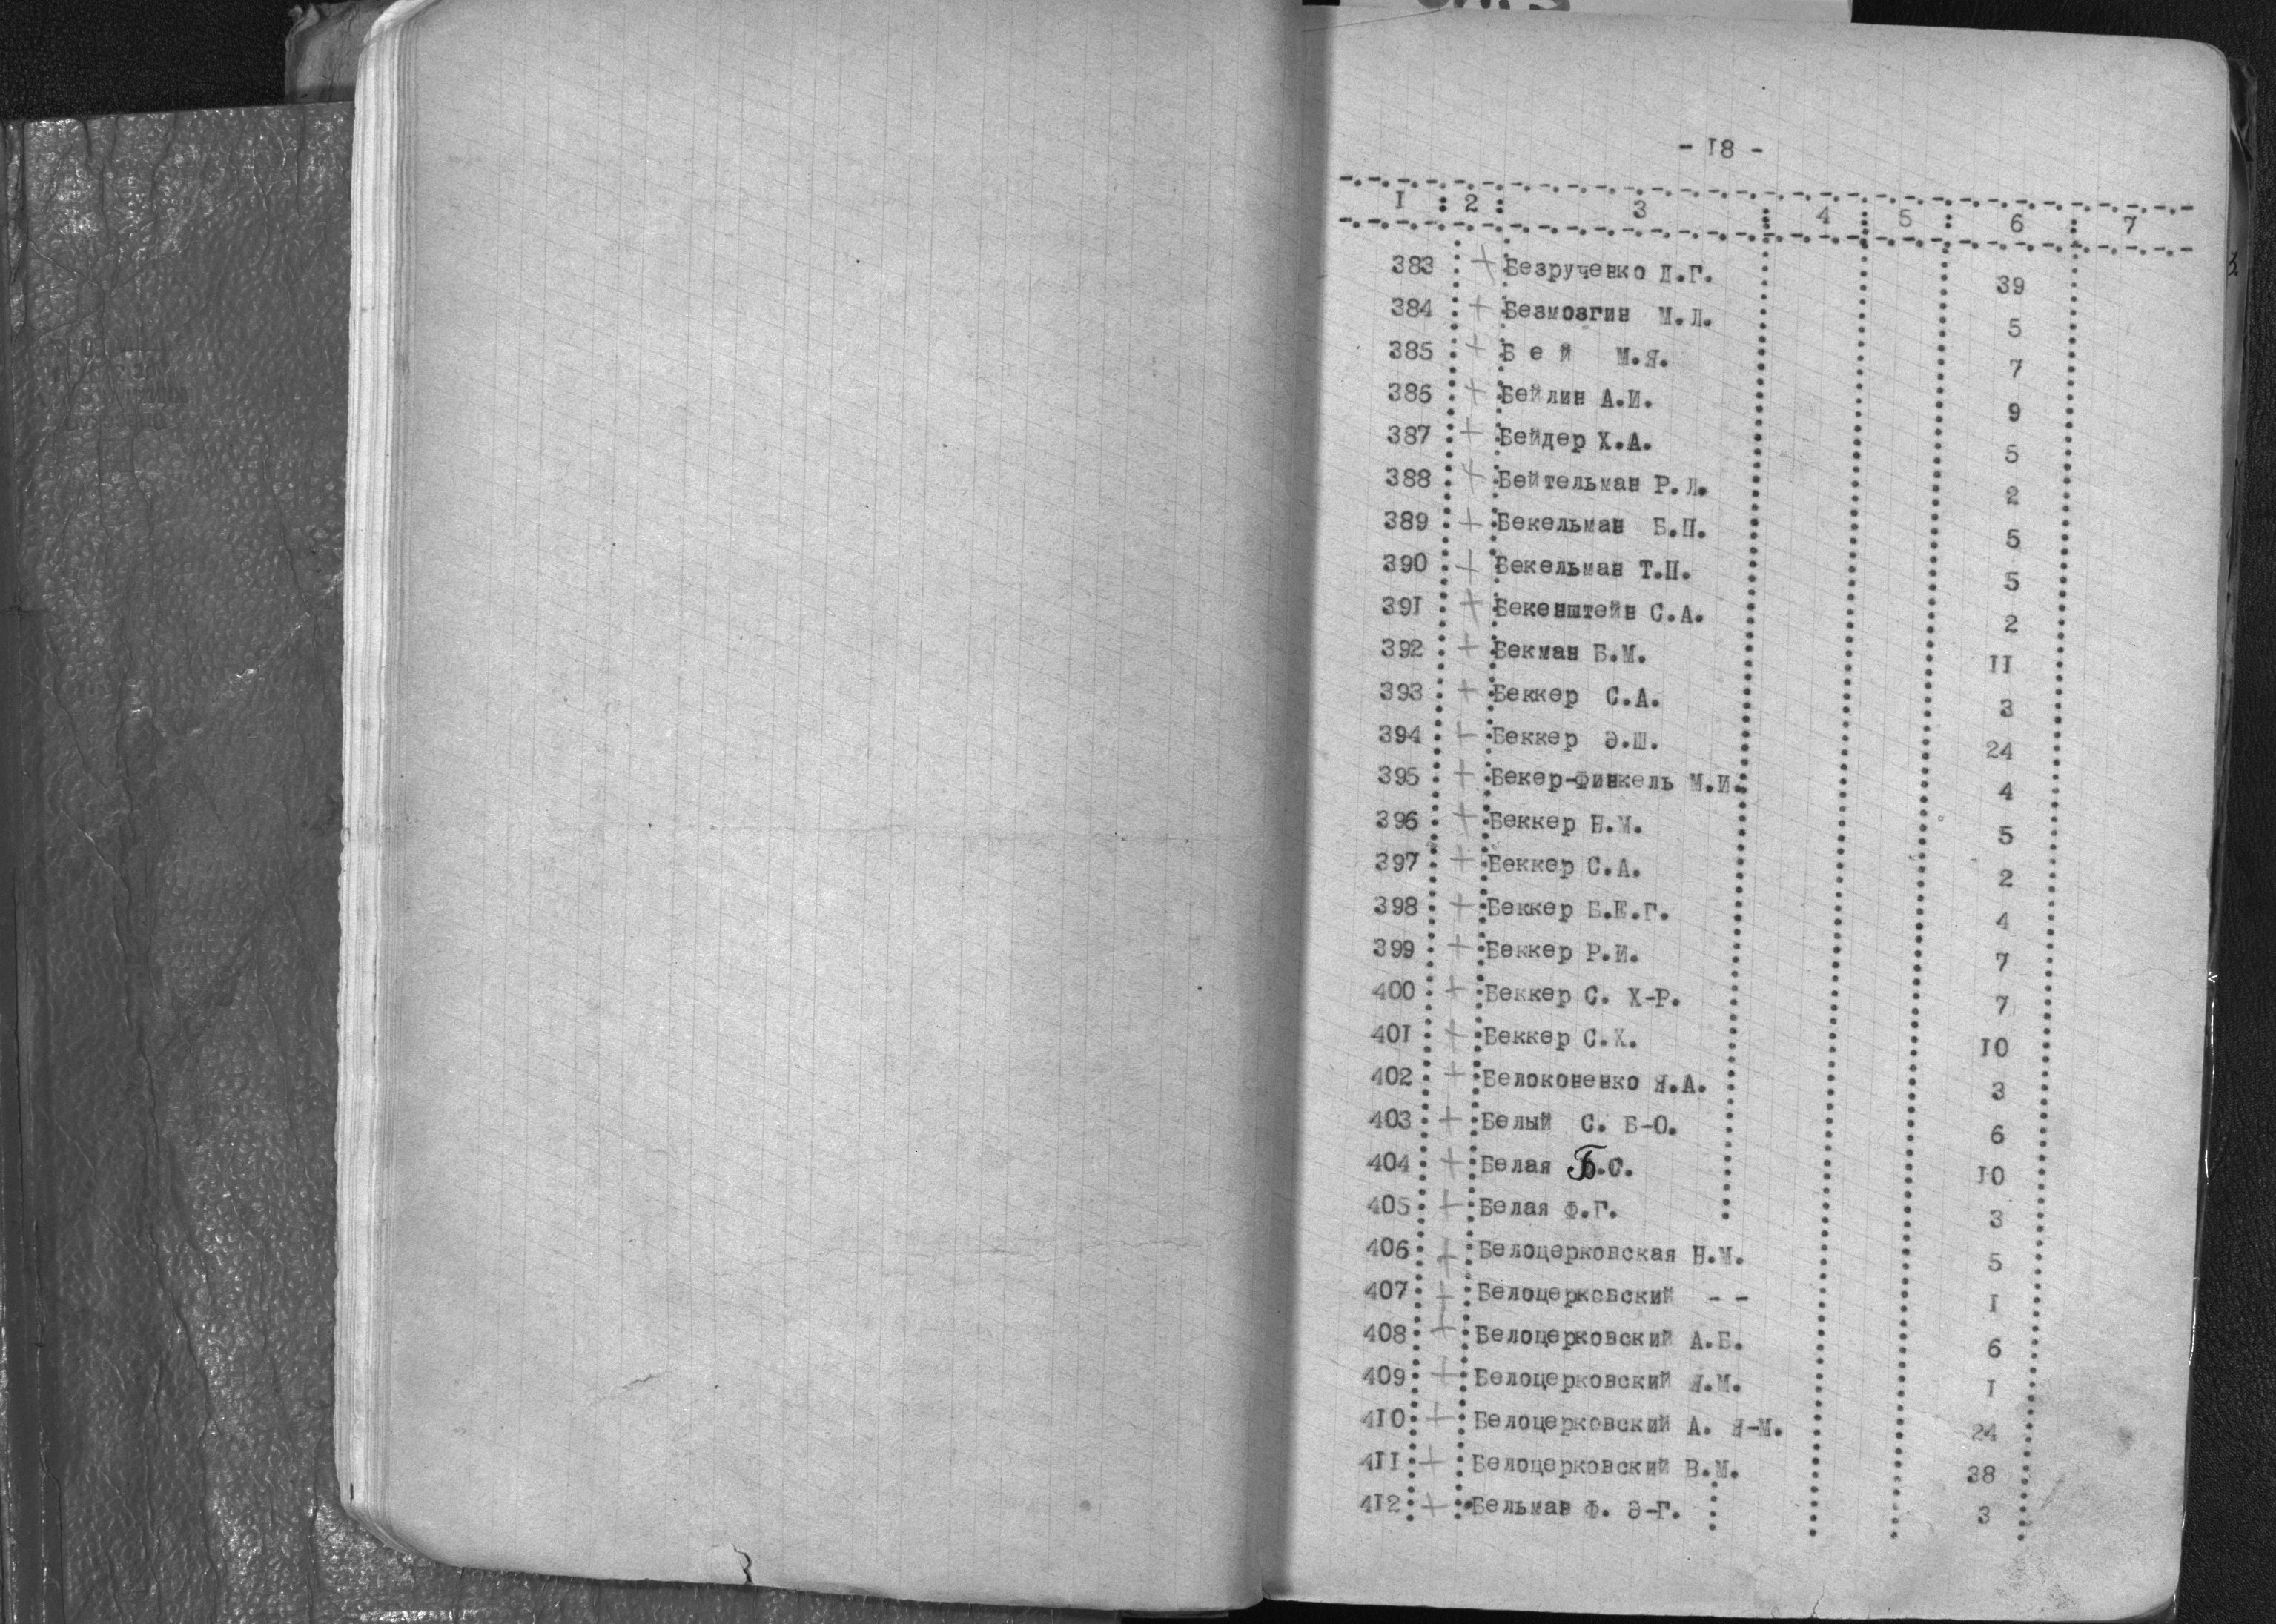 - I8 -
I : 2 : 3 : 4 : 5 : 6 : 7
383 + Безрученко Д.Г. 39
384 + Безмозгин М.Л. 5
385 + Б е й М.Я. 7
386 + Бейлин А.И. 9
387 + Бейдер Х.А. 5
388 + Бейтельман Р.Л. 2
389 + Бекельман Б.П. 5
390 + Бекельман Т.П. 5
39I + Бекенштейн С.А. 2
392 + Бекман Б.М. II
393 + Беккер С.А. 3
394 + Беккер Э.Ш. 24
395 + Бекер-Финкель М.И. 4
396 + Беккер Н.М. 5
397 + Беккер С.А. 2
398 + Беккер Б.Е.Г. 4
399 + Беккер Р.И. 7
400 + Беккер С. Х-Р. 7
40I + Беккер С.Х. IO
402 + Белоконенко Я.А. 3
403 + Белый С. Б-О. 6
404 + Белая Б.С. IO
405 + Белая Ф.Г. 3
406 + Белоцерковская Н.М. 5
407 + Белоцерковский - - I
408 + Белоцерковский А.Б. 6
409 + Белоцерковский Я.М. I
4IO + Белоцерковский А. Я-М. 24
4II + Белоцерковский В.М. 38
4I2 + Бельман Ф. Э-Г. 3